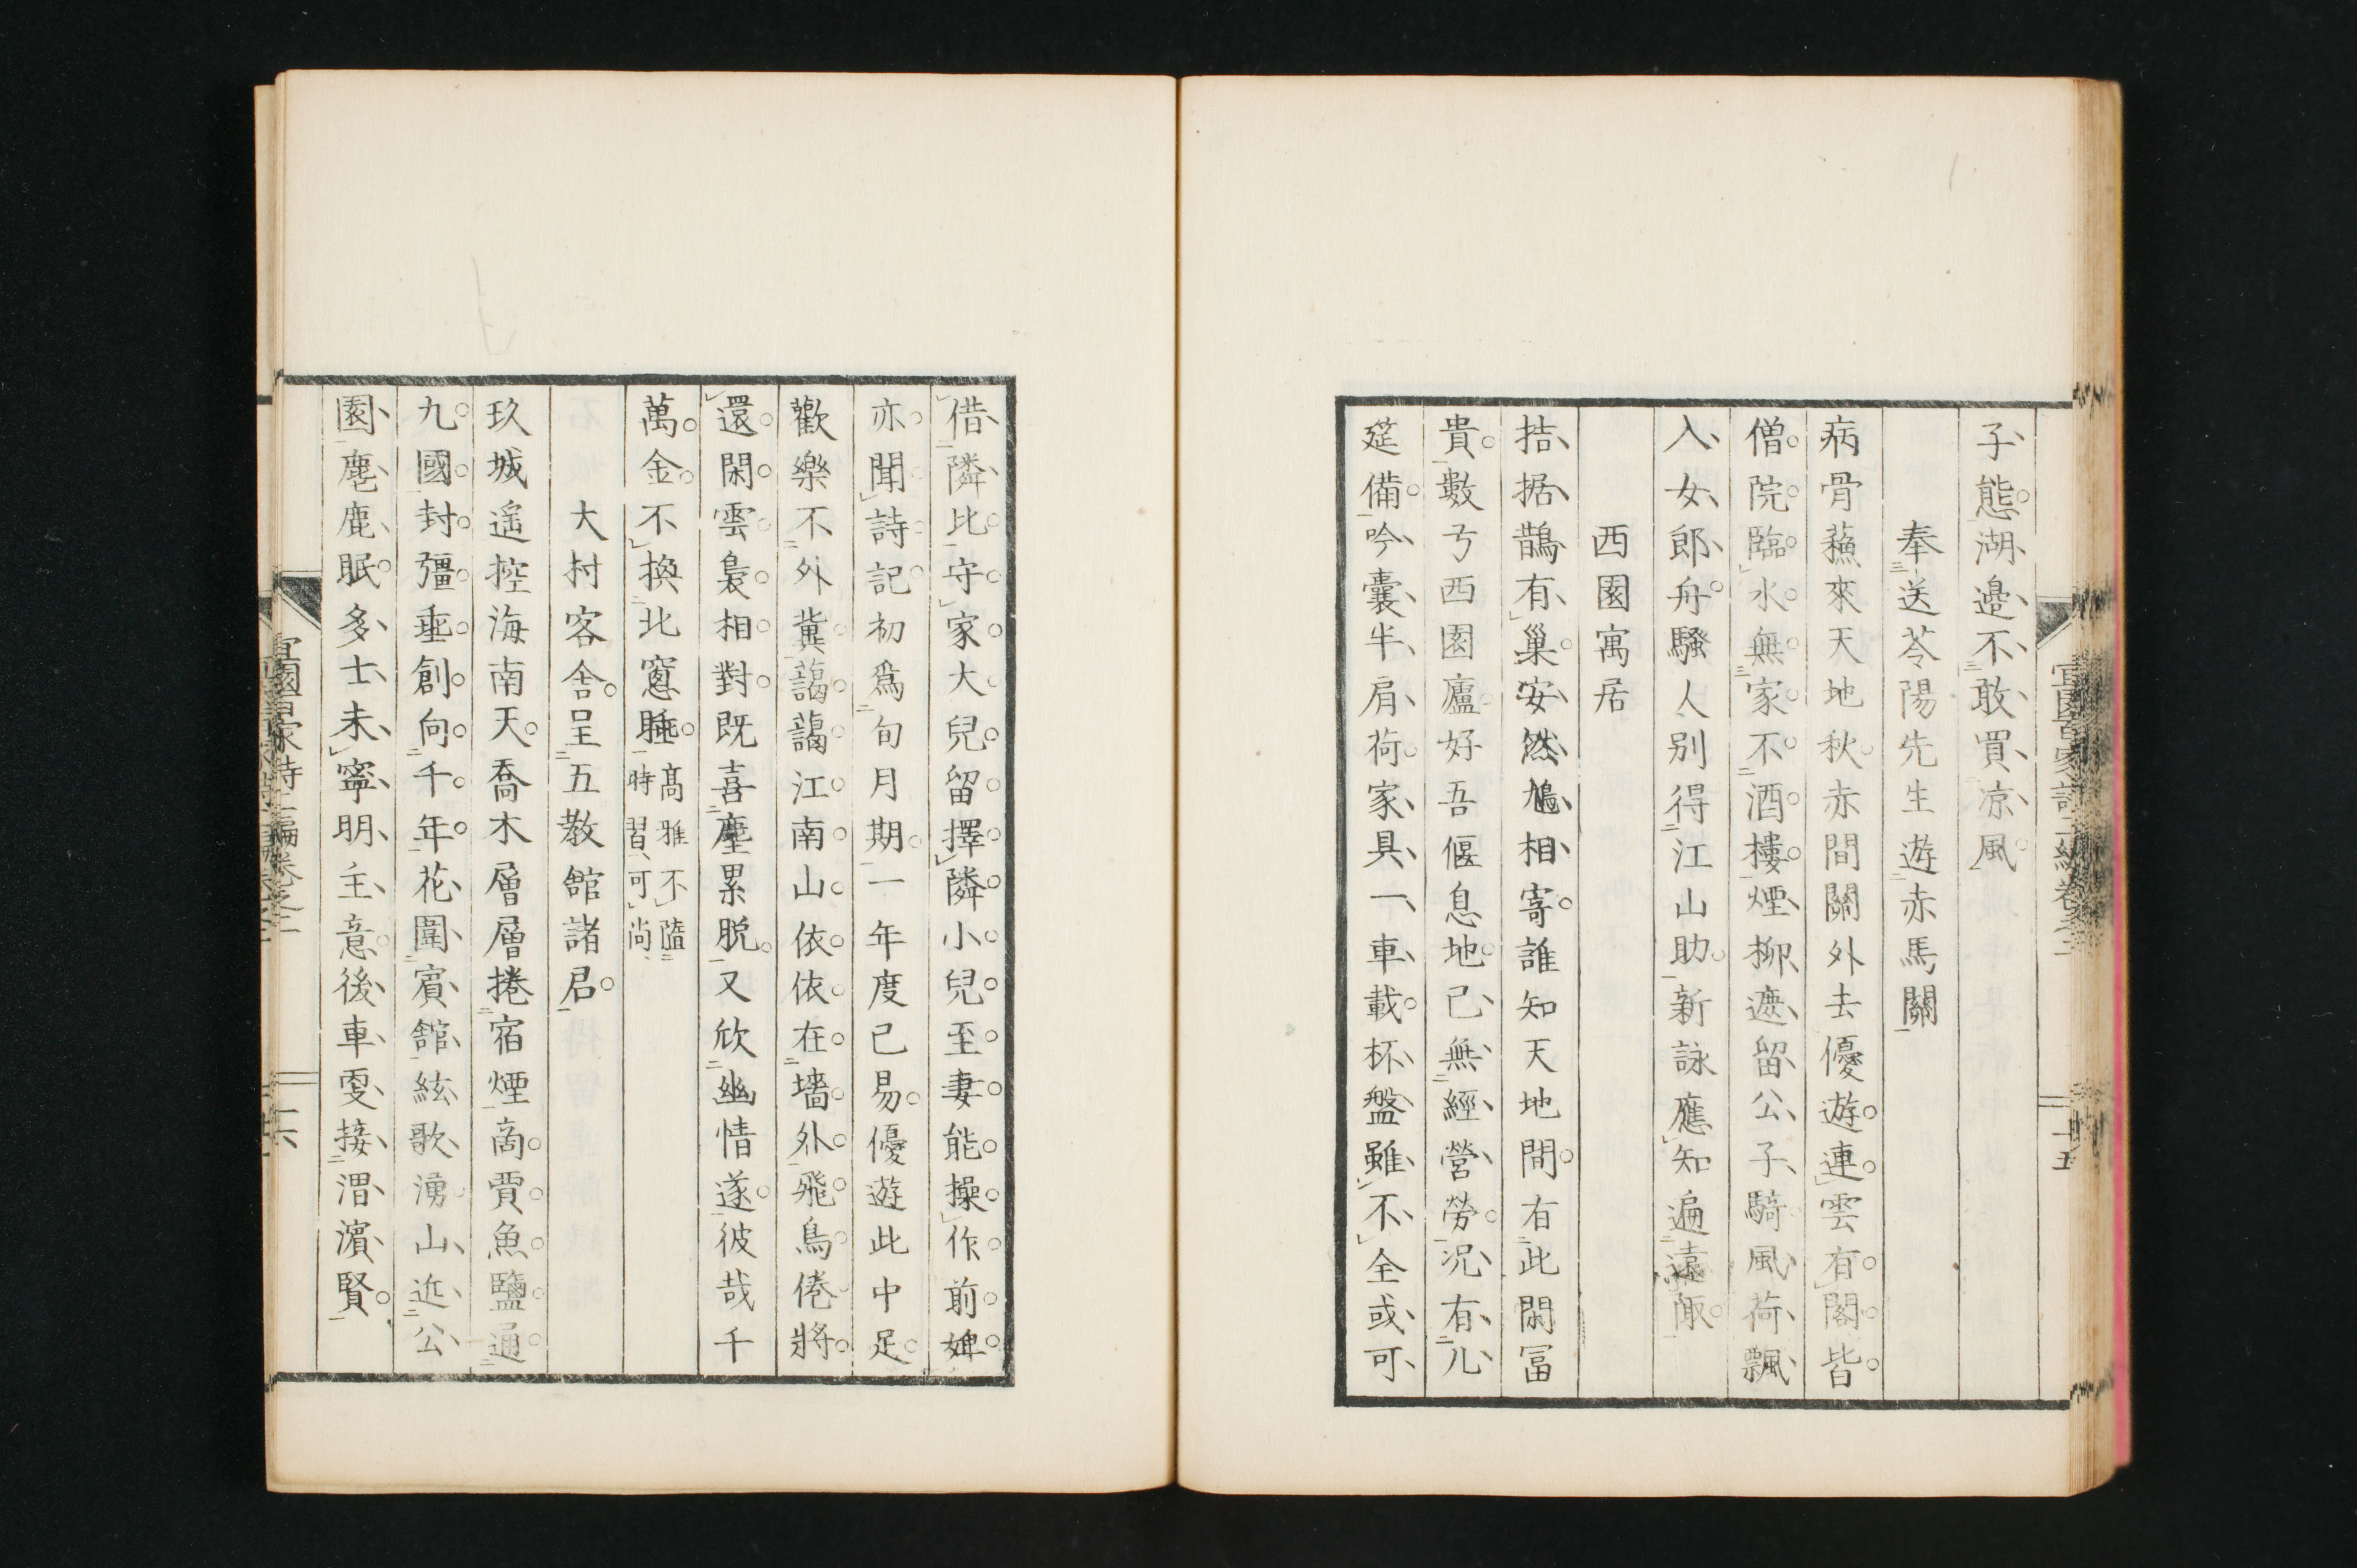 子態湖邊不敢買凉風
奉送苓陽先生遊赤馬關
病骨蘓來天地秋赤間關外去優遊連雲有閣皆
僧院臨水無家不酒樓煙柳遮留公子騎風荷飄
入女郎舟騷人別得江山助新詠應知遍遠陬
西園寓居
拮据鵲有巢安然鳩相寄誰知天地間有此閑冨
貴數弓西園廬好吾偃息地已無經營勞况有几
筵備吟囊半肩荷家具一車載杯盤雖不全或可
借隣比守家大兒留擇隣小兒至妻能操作前婢
亦聞詩記初爲旬月期一年度已易優遊此中足
歡樂不外冀藹藹江南山依依在墻外飛鳥倦將
還閑雲裊相對既喜塵累脱又欣幽情遂彼哉千
萬金不換北窓睡
高雅不隨
時習可尚
大村客舍呈五教館諸君
玖城遥控海南天喬木層層捲宿煙商賈魚鹽通
九國封彊垂創向千年花圍賓館絃歌湧山近公
園麀鹿眠多士未寧明主意後車要接渭濱賢
宜園百家詩二編卷之二
十五
宜園百家詩二編卷之二
十六